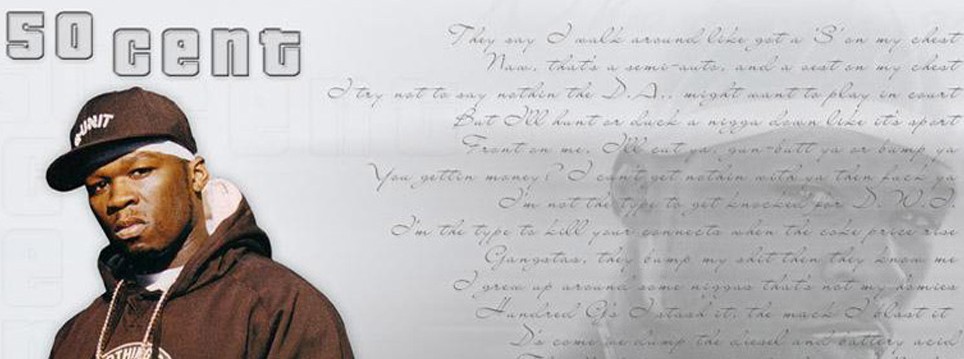 50 cent
G-UNIT
They say I walk around like got a 'S' on my chest
Naw, that's a semi-auto, and a vest on my chest
I try not to say nothin the D.A.. might want to play in court
But I'll hunt or duck a nigga down like it's sport
Front on me, I'll cut ya, gun-butt ya or bump ya
You gettin money? I can't get nothin with ya then fuck ya
I'm not the type to get knocked for D.W.I.
I'm the type to kill your connects when the coke price rise
Gangstas, they bump my shit then they know me
I grew up around some niggas that's not my homies
Hundred G's I stash it, the mack I blast it
D's come we dump the diesel and battery acid